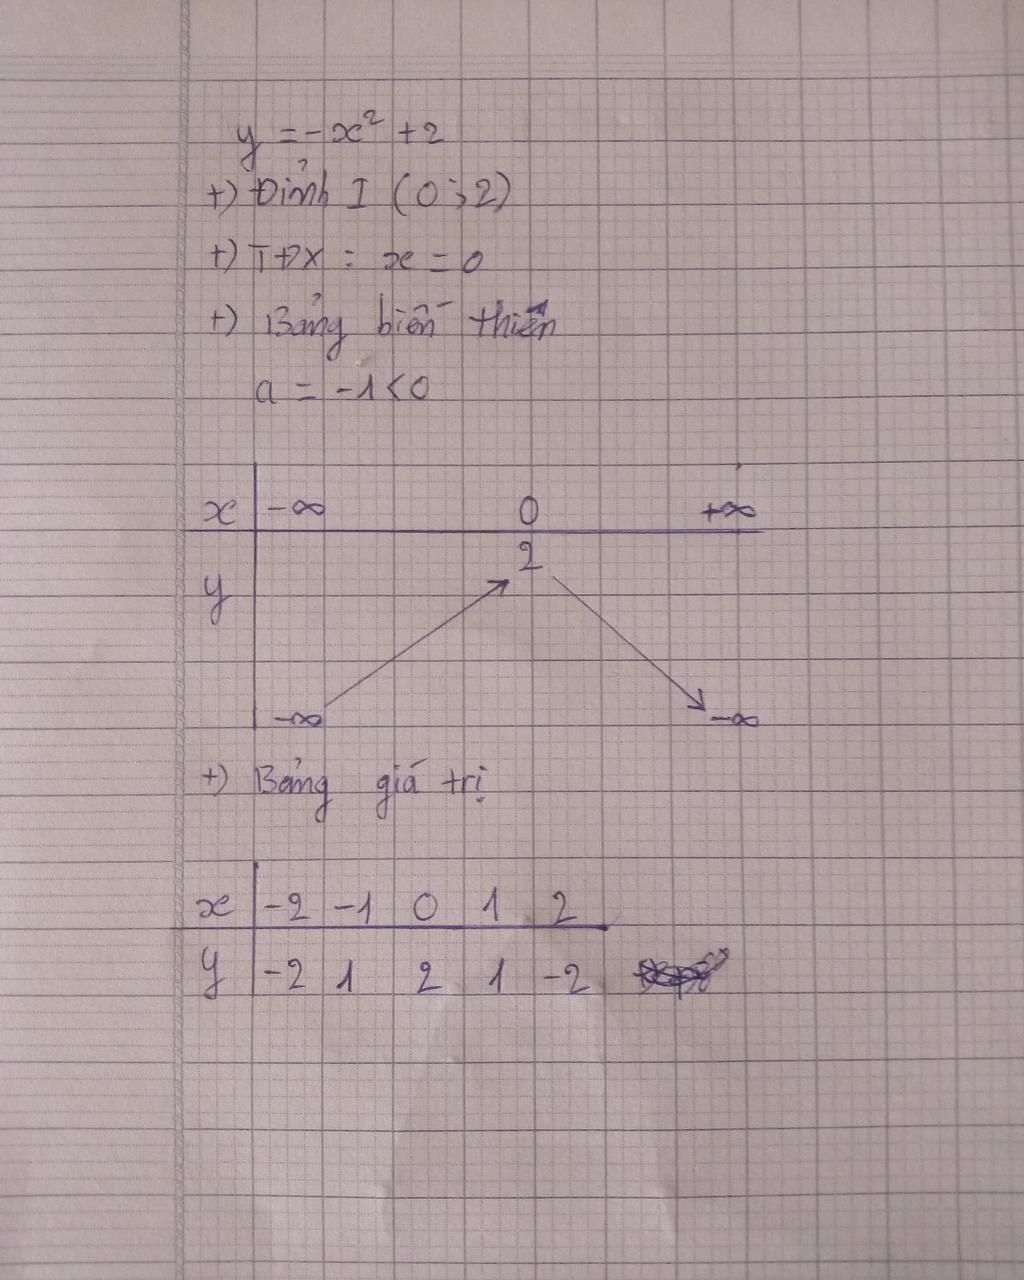 y = -x² + 2
+) Đỉnh I (0; 2)
+) TĐX : x = 0
+) Bảng biến thiên
a = -1 < 0
x -∞ 0 +∞
2
y
-∞ -∞
+) Bảng giá trị
x -2 -1 0 1 2
y -2 1 2 1 -2